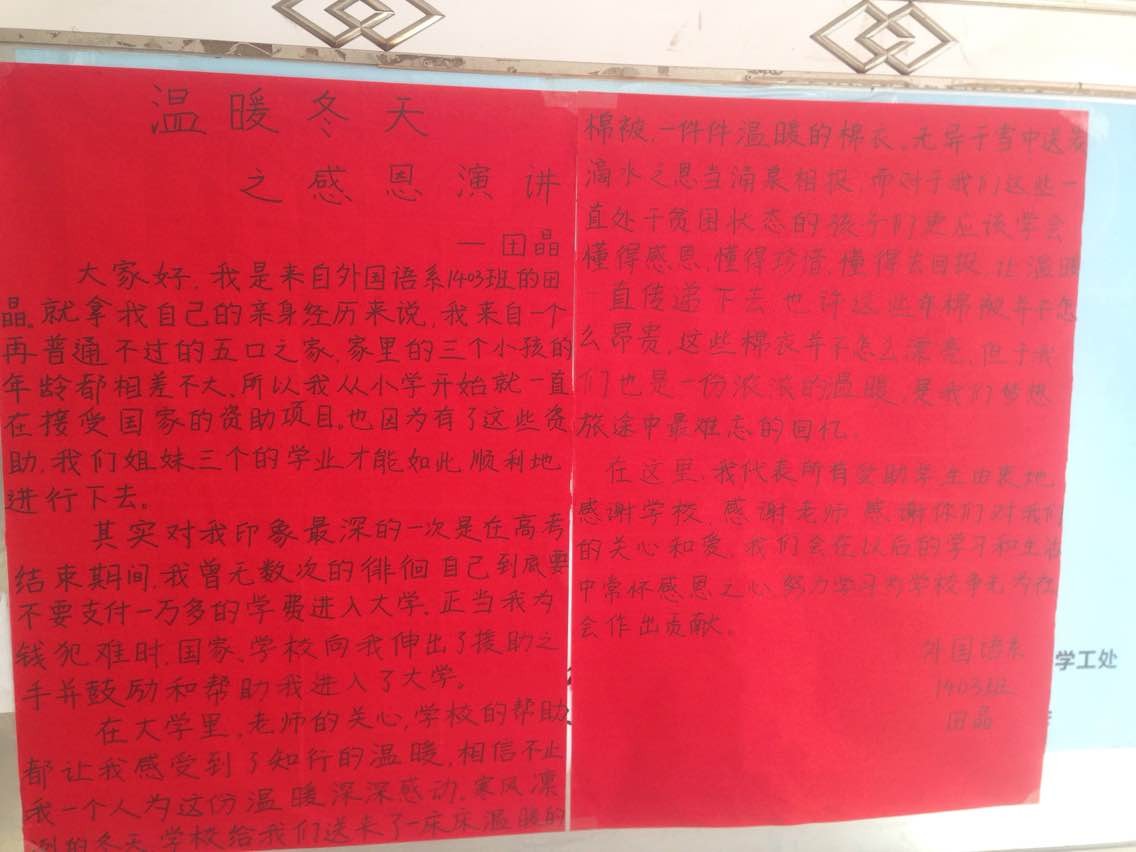 温暖冬天
之感恩演讲
一田晶
大家好,我是来自外国语系1403班的田
晶。就拿我自己的亲身经历来说,我来自一个
再普通不过的五口之家,家里的三个小孩的
年龄都相差不大,所以我从小学开始就一直
在接受国家的资助项目。也因为有了这些资
助,我们姐妹三个的学业才能如此顺利地
进行下去。
其实对我印象最深的一次是在高考
结束期间,我曾无数次的徘徊自己到底要
不要支付一万多的学费进入大学,正当我为
钱犯难时,国家、学校向我伸出了援助之
手并鼓励和帮助我进入了大学。
在大学里,老师的关心,学校的帮助
都让我感受到了知行的温暖,相信不止
我一个人为这份温暖深深感动,寒风凛
冽的冬天,学校给我们送来了一床床温暖的
棉被,一件件温暖的棉衣,无异于雪中送炭
滴水之恩当涌泉相报,而对于我们这些一
直处于贫困状态的孩子们更应该学会
懂得感恩,懂得珍惜,懂得去回报,让温暖
一直传递下去也许这些年棉被并不怎
么昂贵,这些棉衣并不怎么漂亮,但于我
们也是一份浓浓的温暖,是我们梦想
旅途中最难忘的回忆.
在这里,我代表所有受助学生由衷地
感谢学校,感谢老师感谢你们对我们
的关心和爱,我们会在以后的学习和生活
中常怀感恩之心,努力学习为学校争光为社
会作出贡献。
外国语系
1403班
田晶
学工处